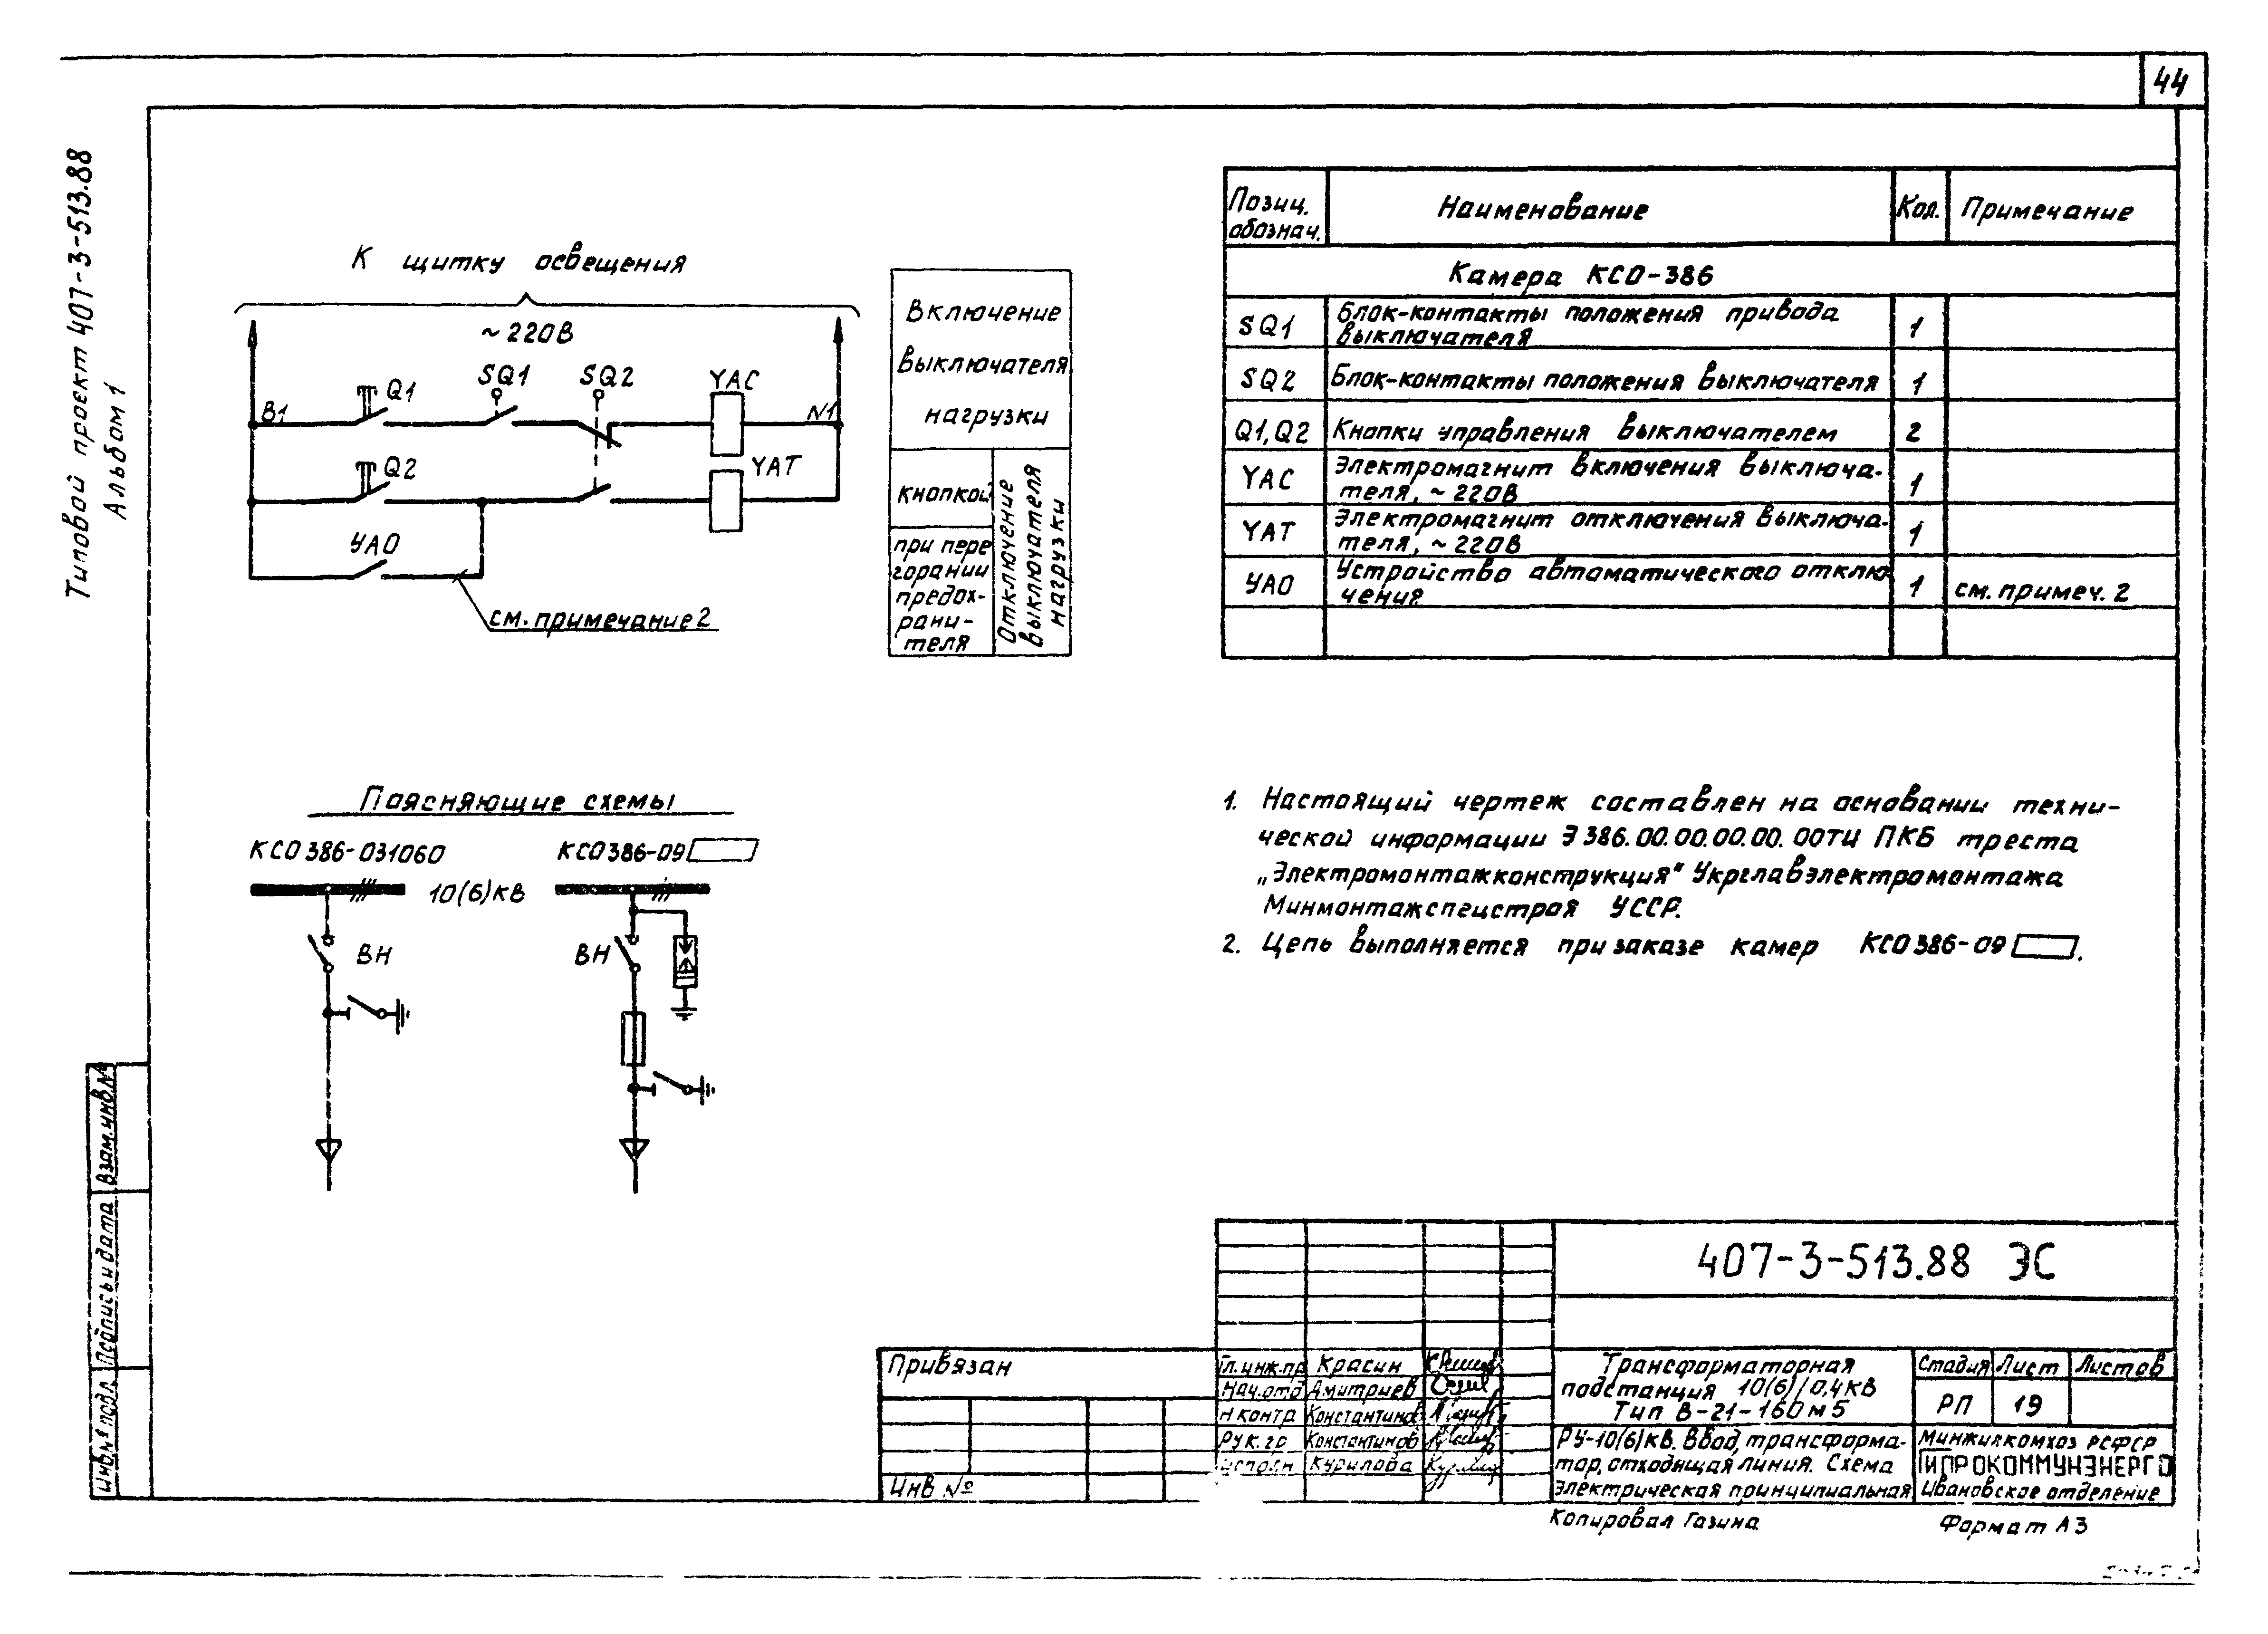 44
Типовой проект 407-3-513.88
Альбом 1
К щитку освещения
~220В
В1
Q1
SQ1
SQ2
YAC
N1
Q2
YAT
УАО
см. примечание 2
Включение
выключателя
нагрузки
кнопкой
при пере
горании
предох-
рани-
теля
Отключение
выключателя
нагрузки
Позиц. обознач.
Наименование
Кол.
Примечание
Камера КСО-386
SQ1
Блок-контакты положения привода
выключателя
1
SQ2
Блок-контакты положения выключателя
1
Q1, Q2
Кнопки управления выключателем
2
YAC
Электромагнит включения выключа-
теля, ~220В
1
YAT
Электромагнит отключения выключа-
теля, ~220В
1
УАО
Устройство автоматического отклю
чения
1
см. примеч. 2
Поясняющие схемы
КСО386-031060
КСО386-09
10(6)кВ
ВН
ВН
1. Настоящий чертеж составлен на основании техни-
ческой информации Э386.00.00.00.00.00ТИ ПКБ треста
„Электромонтажконструкция" Укрглавэлектромонтажа
Минмонтажспецстроя УССР.
2. Цепь выполняется при заказе камер КСО386-09 .
Взам.инв.№
Подпись и дата
Инв.№ подл.
Привязан
Инв №
Гл.инж.пр Красин
Нач.отд Дмитриев
Н контр Константинов
Рук.гр Константинов
Исполн Курилова
407-3-513.88 ЭС
Трансформаторная
подстанция 10(6)/0,4кВ
Тип В-21-160м5
Стадия Лист Листов
РП 19
РУ-10(6)кВ. Ввод, трансформа-
тор, отходящая линия. Схема
электрическая принципиальная
Минжилкомхоз РСФСР
ГИПРОКОММУНЭНЕРГО
Ивановское отделение
Копировал Газина
Формат А3